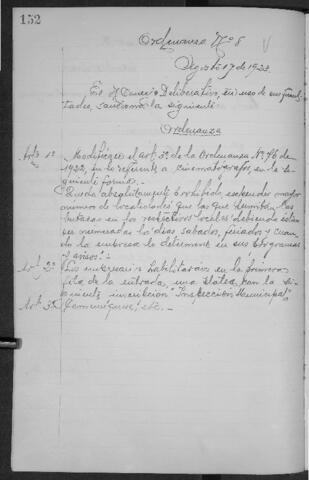 152
Ordenanza Nº 8
Agosto 17 de 1923.
El H. Concejo Deliberativo, en uso de sus facul-
tades, sanciona la siguiente
Ordenanza
Art. 1º Modifícase el art. 3º de la Ordenanza Nº 76 de
1922, en lo referente a cinematógrafos, en la si-
guiente forma:
"Queda absolutamente prohibido, expender mayor
número de localidades que las que
butacas en los respectivos locales debiendo estar
numeradas los días sábados, feriados y cuan-
do la empresa lo determine en sus programas
y avisos".
Art. 2º Los empresarios habilitarán en la primera
fila de la entrada, una platea, con la si-
guiente inscripción "Inspección Municipal"
Art. 3º Comuníquese, etc. —